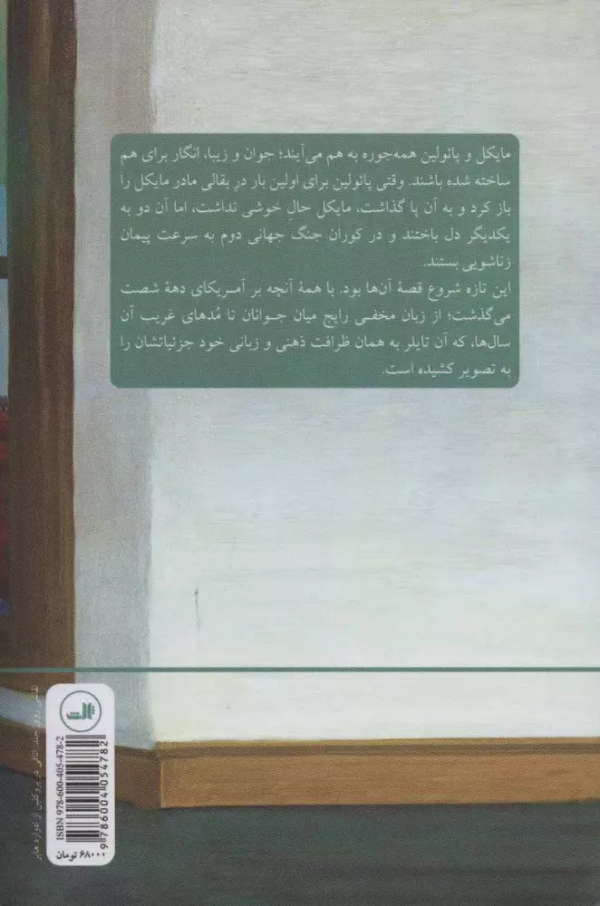 مایکل و پائولین همه‌جوره به هم می‌آیند؛ جوان و زیبا، انگار برای هم
ساخته شده باشند. وقتی پائولین برای اولین بار در بقالی مادر مایکل را
باز کرد و به آن پا گذاشت، مایکل حال خوشی نداشت، اما آن دو به
یکدیگر دل باختند و در کوران جنگ جهانی دوم به سرعت پیمان
زناشویی بستند.
این تازه شروع قصهٔ آن‌ها بود. با همهٔ آنچه بر آمریکای دههٔ شصت
می‌گذشت؛ از زبان مخفی رایج میان جوانان تا مُدهای غریب آن
سال‌ها، که آن تایلر به همان ظرافت ذهنی و زبانی خود جزئیاتشان را
به تصویر کشیده است.
نقاشی روی جلد: اتاقی در بروکلین از ادوارد هاپر
ثالث
ISBN 978-600-405-478-2
9 786004 054782
۶۸۰۰۰ تومان